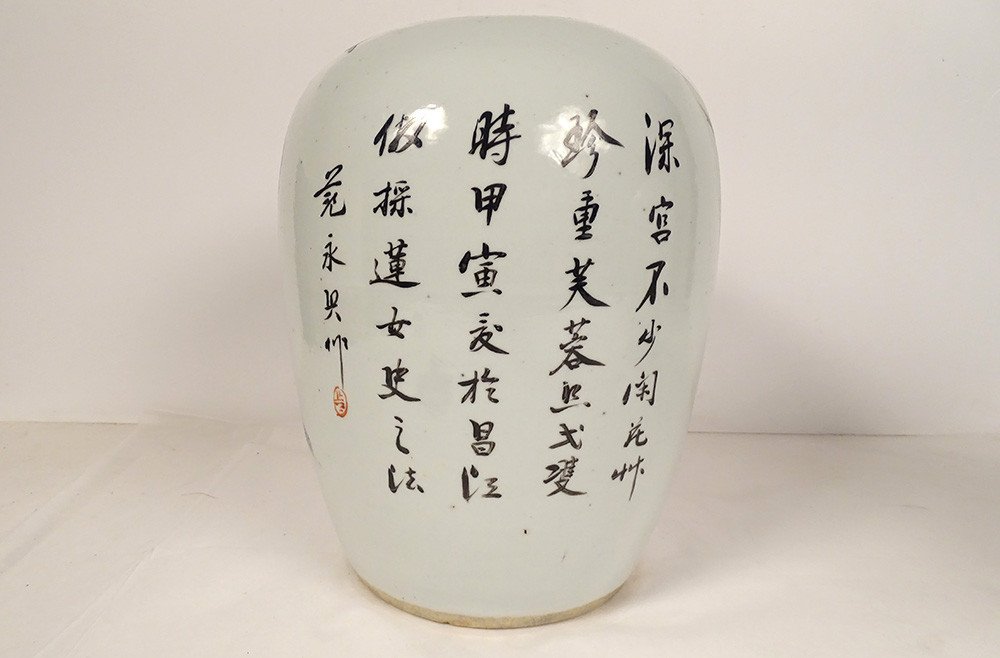 深宮不少閒花艸
珍重芙蓉照弍雙
時甲寅夏於昌江
倣採蓮女史之法
范永興作